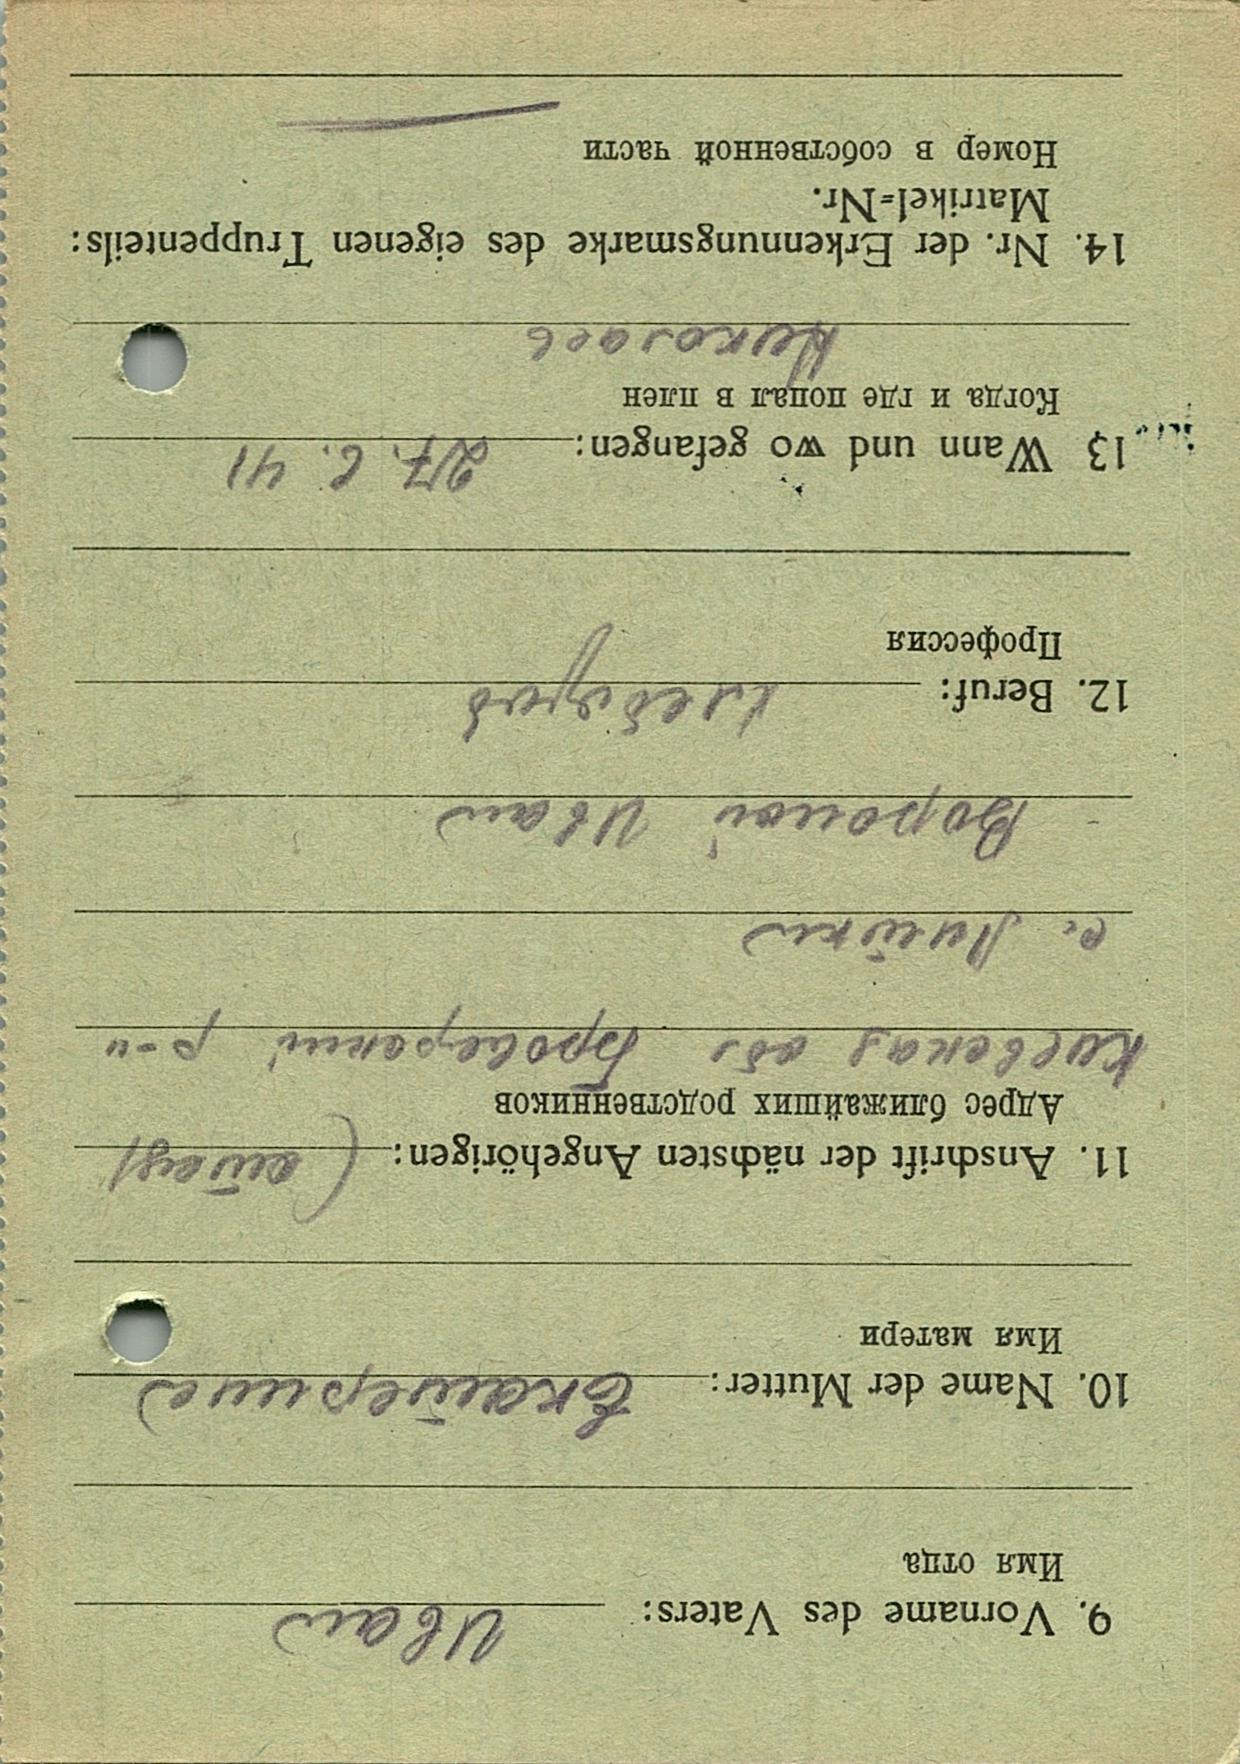 9. Vorname des Vaters: Иван
Имя отца
10. Name der Mutter: Екатерина
Имя матери
11. Anschrift der nächsten Angehörigen:
Адрес ближайших родственников
Киевская обл Броварский р-н
с.
Вороной Иван
12. Beruf:
Профессия
13 Wann und wo gefangen: 27. 6. 41
Когда и где попал в плен
Николаев
14. Nr. der Erkennungsmarke des eigenen Truppenteils:
Matrikel=Nr.
Номер в собственной части